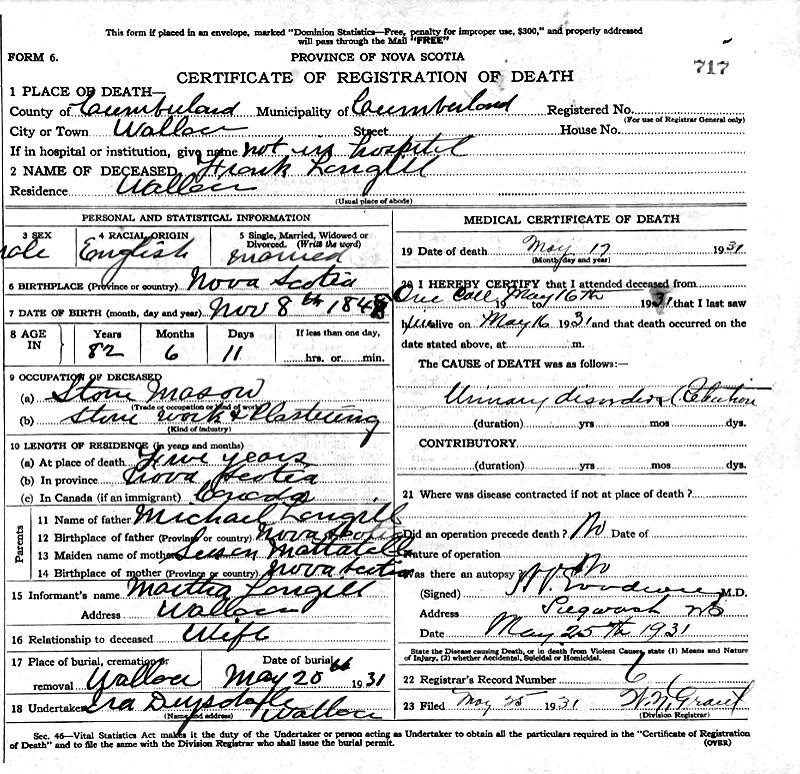 This form if placed in an envelope, marked "Dominion Statistics—Free, penalty for improper use, $300," and properly addressed
will pass through the Mail "FREE"
FORM 6.
PROVINCE OF NOVA SCOTIA
717
CERTIFICATE OF REGISTRATION OF DEATH
1 PLACE OF DEATH—
County of Cumberland Municipality of Cumberland Registered No.
(For use of Registrar General only)
City or Town Wallace Street House No.
If in hospital or institution, give name not in hospital
2 NAME OF DECEASED Frank Langill
Residence Wallace
(Usual place of abode)
PERSONAL AND STATISTICAL INFORMATION
3 SEX 4 RACIAL ORIGIN 5 Single, Married, Widowed or
Divorced. (Write the word)
male English married
6 BIRTHPLACE (Province or country) Nova Scotia
7 DATE OF BIRTH (month, day and year) Nov 8th 1848
8 AGE IN Years Months Days If less than one day,
82 6 11 hrs. or min.
9 OCCUPATION OF DECEASED
(a) Stone Mason
(Trade or occupation or kind of work)
(b) Stone work & Plastering
(Kind of industry)
10 LENGTH OF RESIDENCE (in years and months)
(a) At place of death years
(b) In province Nova Scotia
(c) In Canada (if an immigrant) Canada
Parents
11 Name of father Michael Langill
12 Birthplace of father (Province or country) Nova Scotia
13 Maiden name of mother Susan Mattatall
14 Birthplace of mother (Province or country) Nova Scotia
15 Informant's name Martha Langill
Address Wallace
16 Relationship to deceased Wife
17 Place of burial, cremation or Date of burial
removal Wallace May 20th 1931
18 Undertaker Wallace
(Name and address)
MEDICAL CERTIFICATE OF DEATH
19 Date of death May 17 1931
(Month, day and year)
20 I HEREBY CERTIFY that I attended deceased from
One Call May 16th 19 to 1931 that I last saw
him alive on May 16 1931 and that death occurred on the
date stated above, at m.
The CAUSE of DEATH was as follows:—
Urinary disorders (Retention
(duration) yrs mos dys.
CONTRIBUTORY
(duration) yrs mos dys.
21 Where was disease contracted if not at place of death?
Did an operation precede death? No Date of
Nature of operation
Was there an autopsy? No
(Signed) M.D.
Address Pugwash NS
Date May 25th 1931
State the Disease causing Death, or in death from Violent Causes, state (1) Means and Nature
of Injury, (2) whether Accidental, Suicidal or Homicidal.
22 Registrar's Record Number
23 Filed May 25 1931 Grant
(Division Registrar)
Sec. 46—Vital Statistics Act makes it the duty of the Undertaker or person acting as Undertaker to obtain all the particulars required in the "Certificate of Registration
of Death" and to file the same with the Division Registrar who shall issue the burial permit.
(OVER)